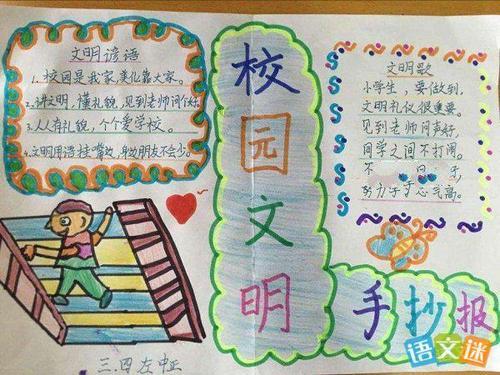 文明谚语
1.校园是我家,美化靠大家。
2.讲文明,懂礼貌,见到老师问个好
3.人人有礼貌,个个爱学校。
4.文明用语挂嘴边,身边朋友不会少。
三.四
校园文明
手抄报
文明歌
小学生,要做到,
文明礼仪很重要。
见到老师问声好,
同学之间不打闹。
不
语文迷